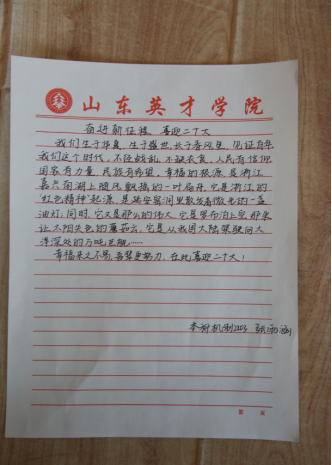 山东英才学院
奋进新征程 喜迎二十大
我们生于华夏,生于盛世,长于春风里,见证百年
我们这个时代,不经战乱,不缺衣食,人民有信仰
国家有力量,民族有希望,幸福的根源,是浙江
嘉兴南湖上随风飘摇的一叶扁舟,它是浙江的
"红色精神"起源,是延安窑洞里散发着微光的一盏
油灯,同时,它又是那么的伟大,它是罗布泊上空那朵
让太阳失色的蘑菇云,它是从我国大陆架驶向大
洋深处的万吨巨舰……
幸福来之不易,吾辈更努力,在此喜迎二十大!
本科机制
第 页